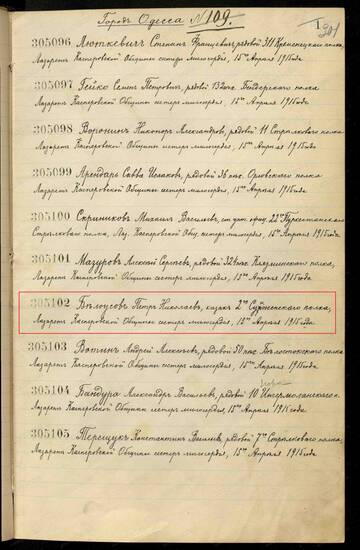 Городъ Одесса № 109.
1
201
305096 Люткевичъ Степанъ Францевичъ, рядовой 311 Кременецкаго полка,
Лазаретъ Касперовской Общины сестеръ милосердія, 15го Апрѣля 1915 года
305097 Гейко Семенъ Петровичъ, рядовой 132 пѣх. Бендерскаго полка
Лазаретъ Касперовской Общины сестеръ милосердія, 15го Апрѣля 1915 года
305098 Воронинъ Никаноръ Александровъ, рядовой 11 Стрѣлковаго полка,
Лазаретъ Касперовской Общины сестеръ милосердія, 15го Апрѣля 1915 года
305099 Арендарь Савва Исааковъ, рядовой 36 пѣх. Орловскаго полка
Лазаретъ Касперовской Общины сестеръ милосердія, 15го Апрѣля 1915 года
305100 Скрынниковъ Михаилъ Васильевъ, ст. унт. офиц. 22го Туркестанскаго
Стрѣлковаго полка, Лаз. Касперовской Общ. сестеръ милосердія, 15го Апрѣля 1915 года
305101 Мазуровъ Алексѣй Сергѣевъ, рядовой 322 пѣх. полка,
Лазаретъ Касперовской Общины сестеръ милосердія, 15го Апрѣля 1915 года
305102 Бѣлоусовъ Петръ Николаевъ, казакъ 2го Сунженскаго полка,
Лазаретъ Касперовской Общины сестеръ милосердія, 15го Апрѣля 1915 года
305103 Вотинъ Андрей Алексѣевъ, рядовой 50 пѣх. Бѣлостокскаго полка,
Лазаретъ Касперовской Общины сестеръ милосердія, 15го Апрѣля 1915 года
305104 Бандура Александръ Васильевъ, рядовой 10 Ингерманландскаго п.
Лазаретъ Касперовской Общины сестеръ милосердія, 15го Апрѣля 1915 года
305105 Терещукъ Константинъ, рядовой 7го Стрѣлковаго полка,
Лазаретъ Касперовской Общины сестеръ милосердія, 15го Апрѣля 1915 года